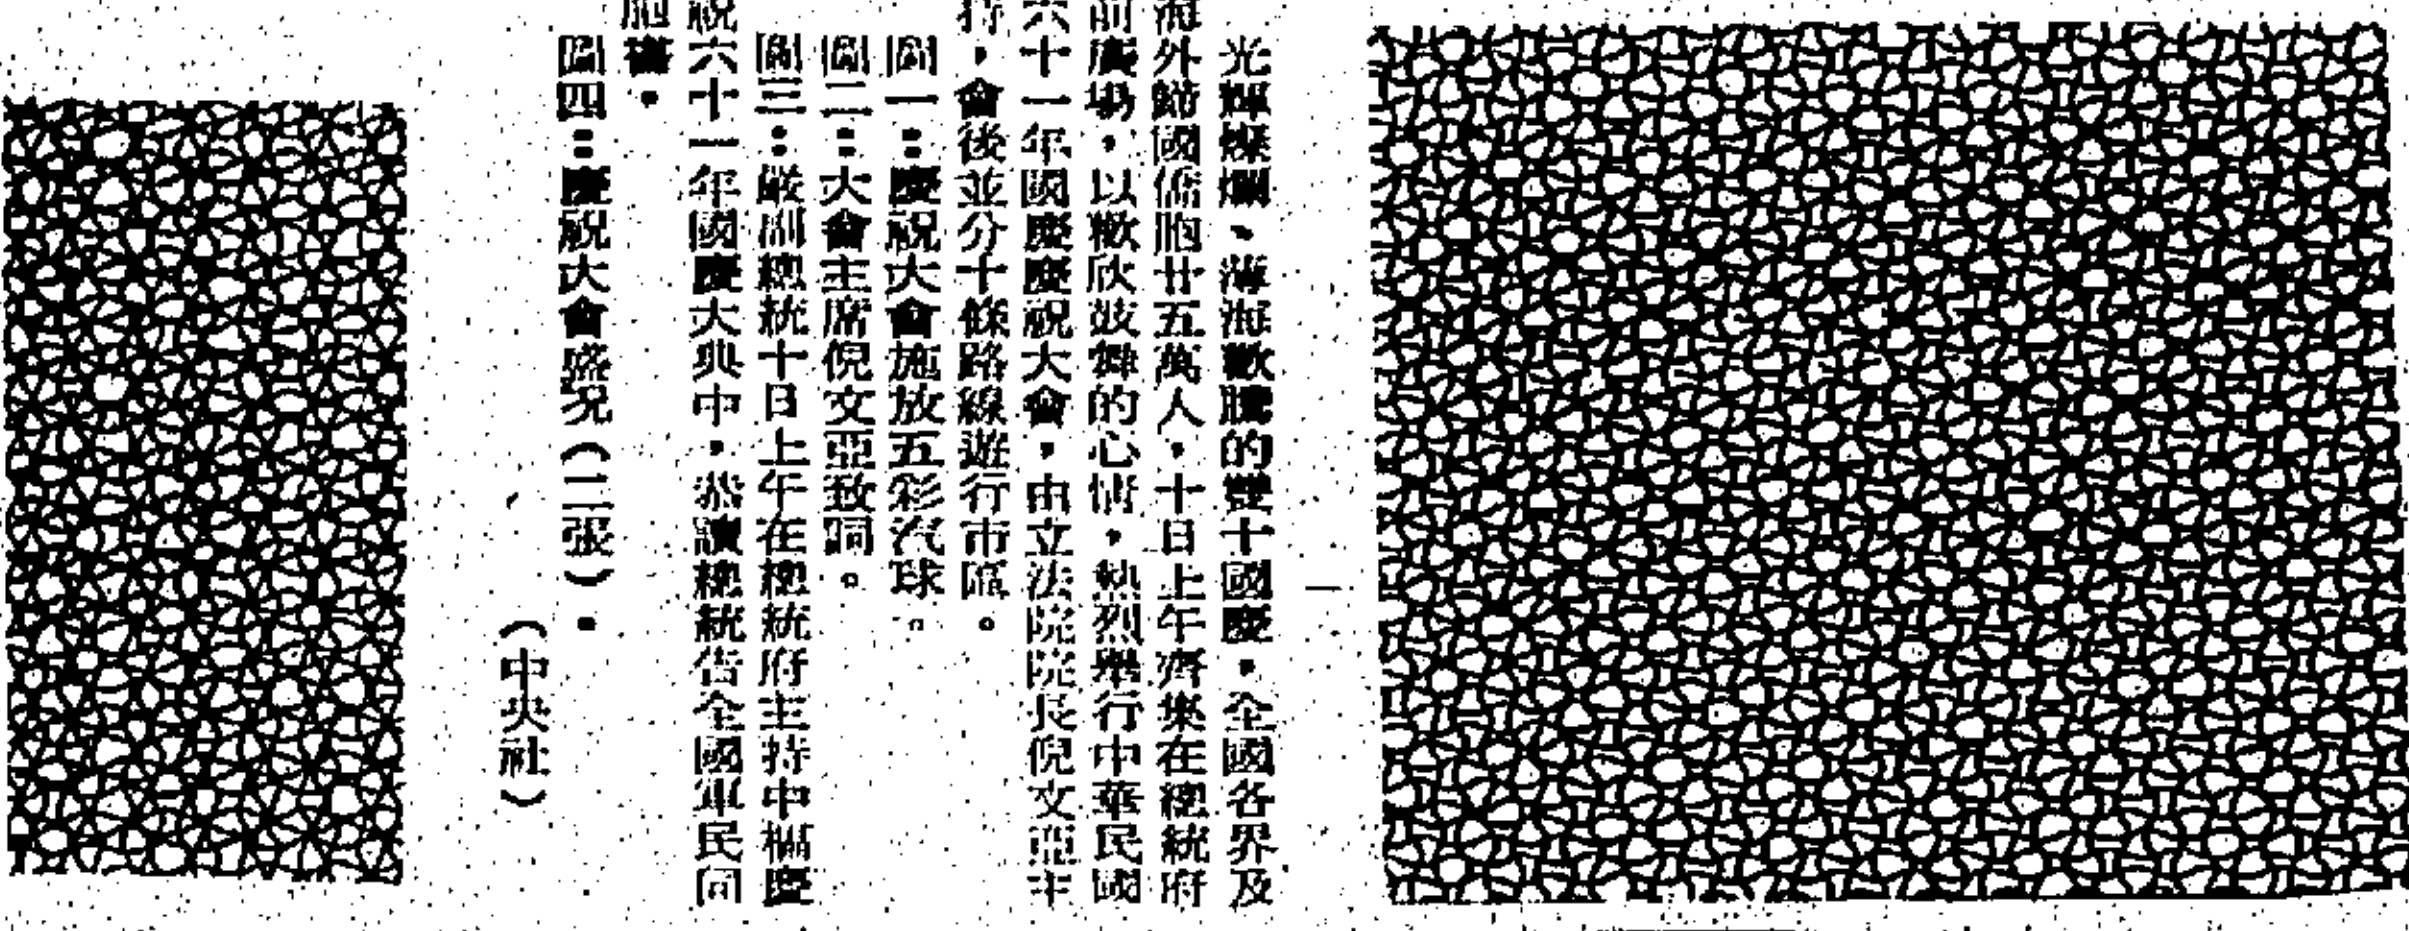 光輝燦爛、薄海歡騰的雙十國慶，全國各界及
海外歸國僑胞廿五萬人，十日上午齊集在總統府
前廣場，以歡欣鼓舞的心情，熱烈舉行中華民國
六十一年國慶慶祝大會，由立法院院長倪文亞主
持，會後並分十條路線遊行市區。
圖一：慶祝大會施放五彩汽球。
圖二：大會主席倪文亞致詞。
圖三：嚴副總統十日上午在總統府主持中樞慶
祝六十一年國慶大典中，恭讀總統告全國軍民同
胞書。
圖四：慶祝大會盛况（二張）。
（中央社）